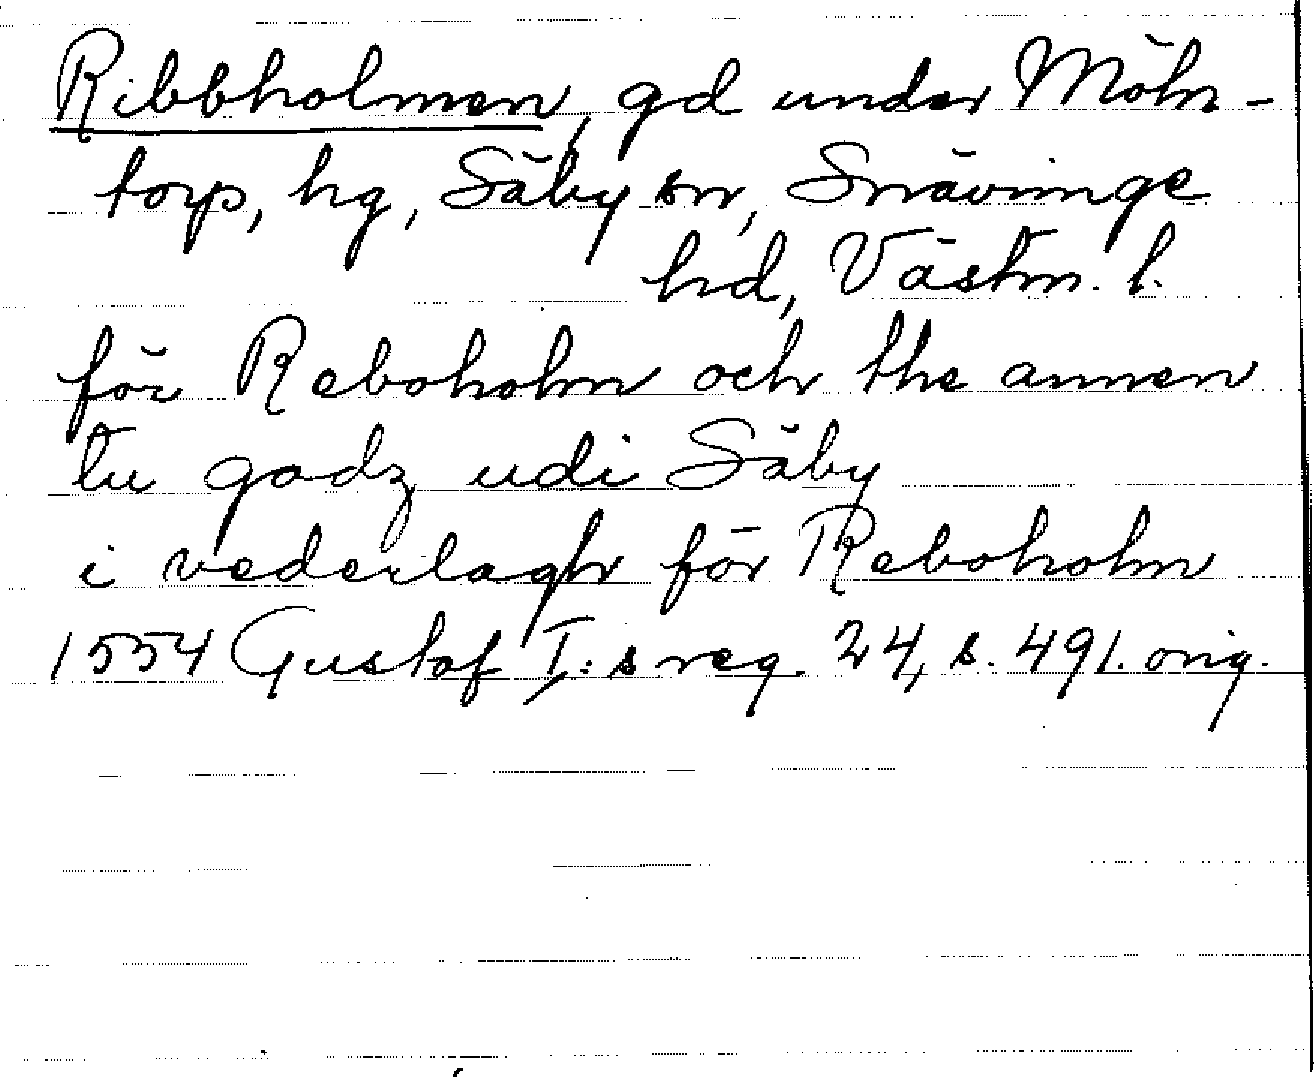 Ribbholmen, gd under Möhn-
torp, hg, Säby sn, Snävringe
hd, Västm. l.
för Reboholm och the annen
tu godz udi Säby
i vederlagh för Reboholm
1554 Gustaf I:s reg. 24, s. 491. orig.